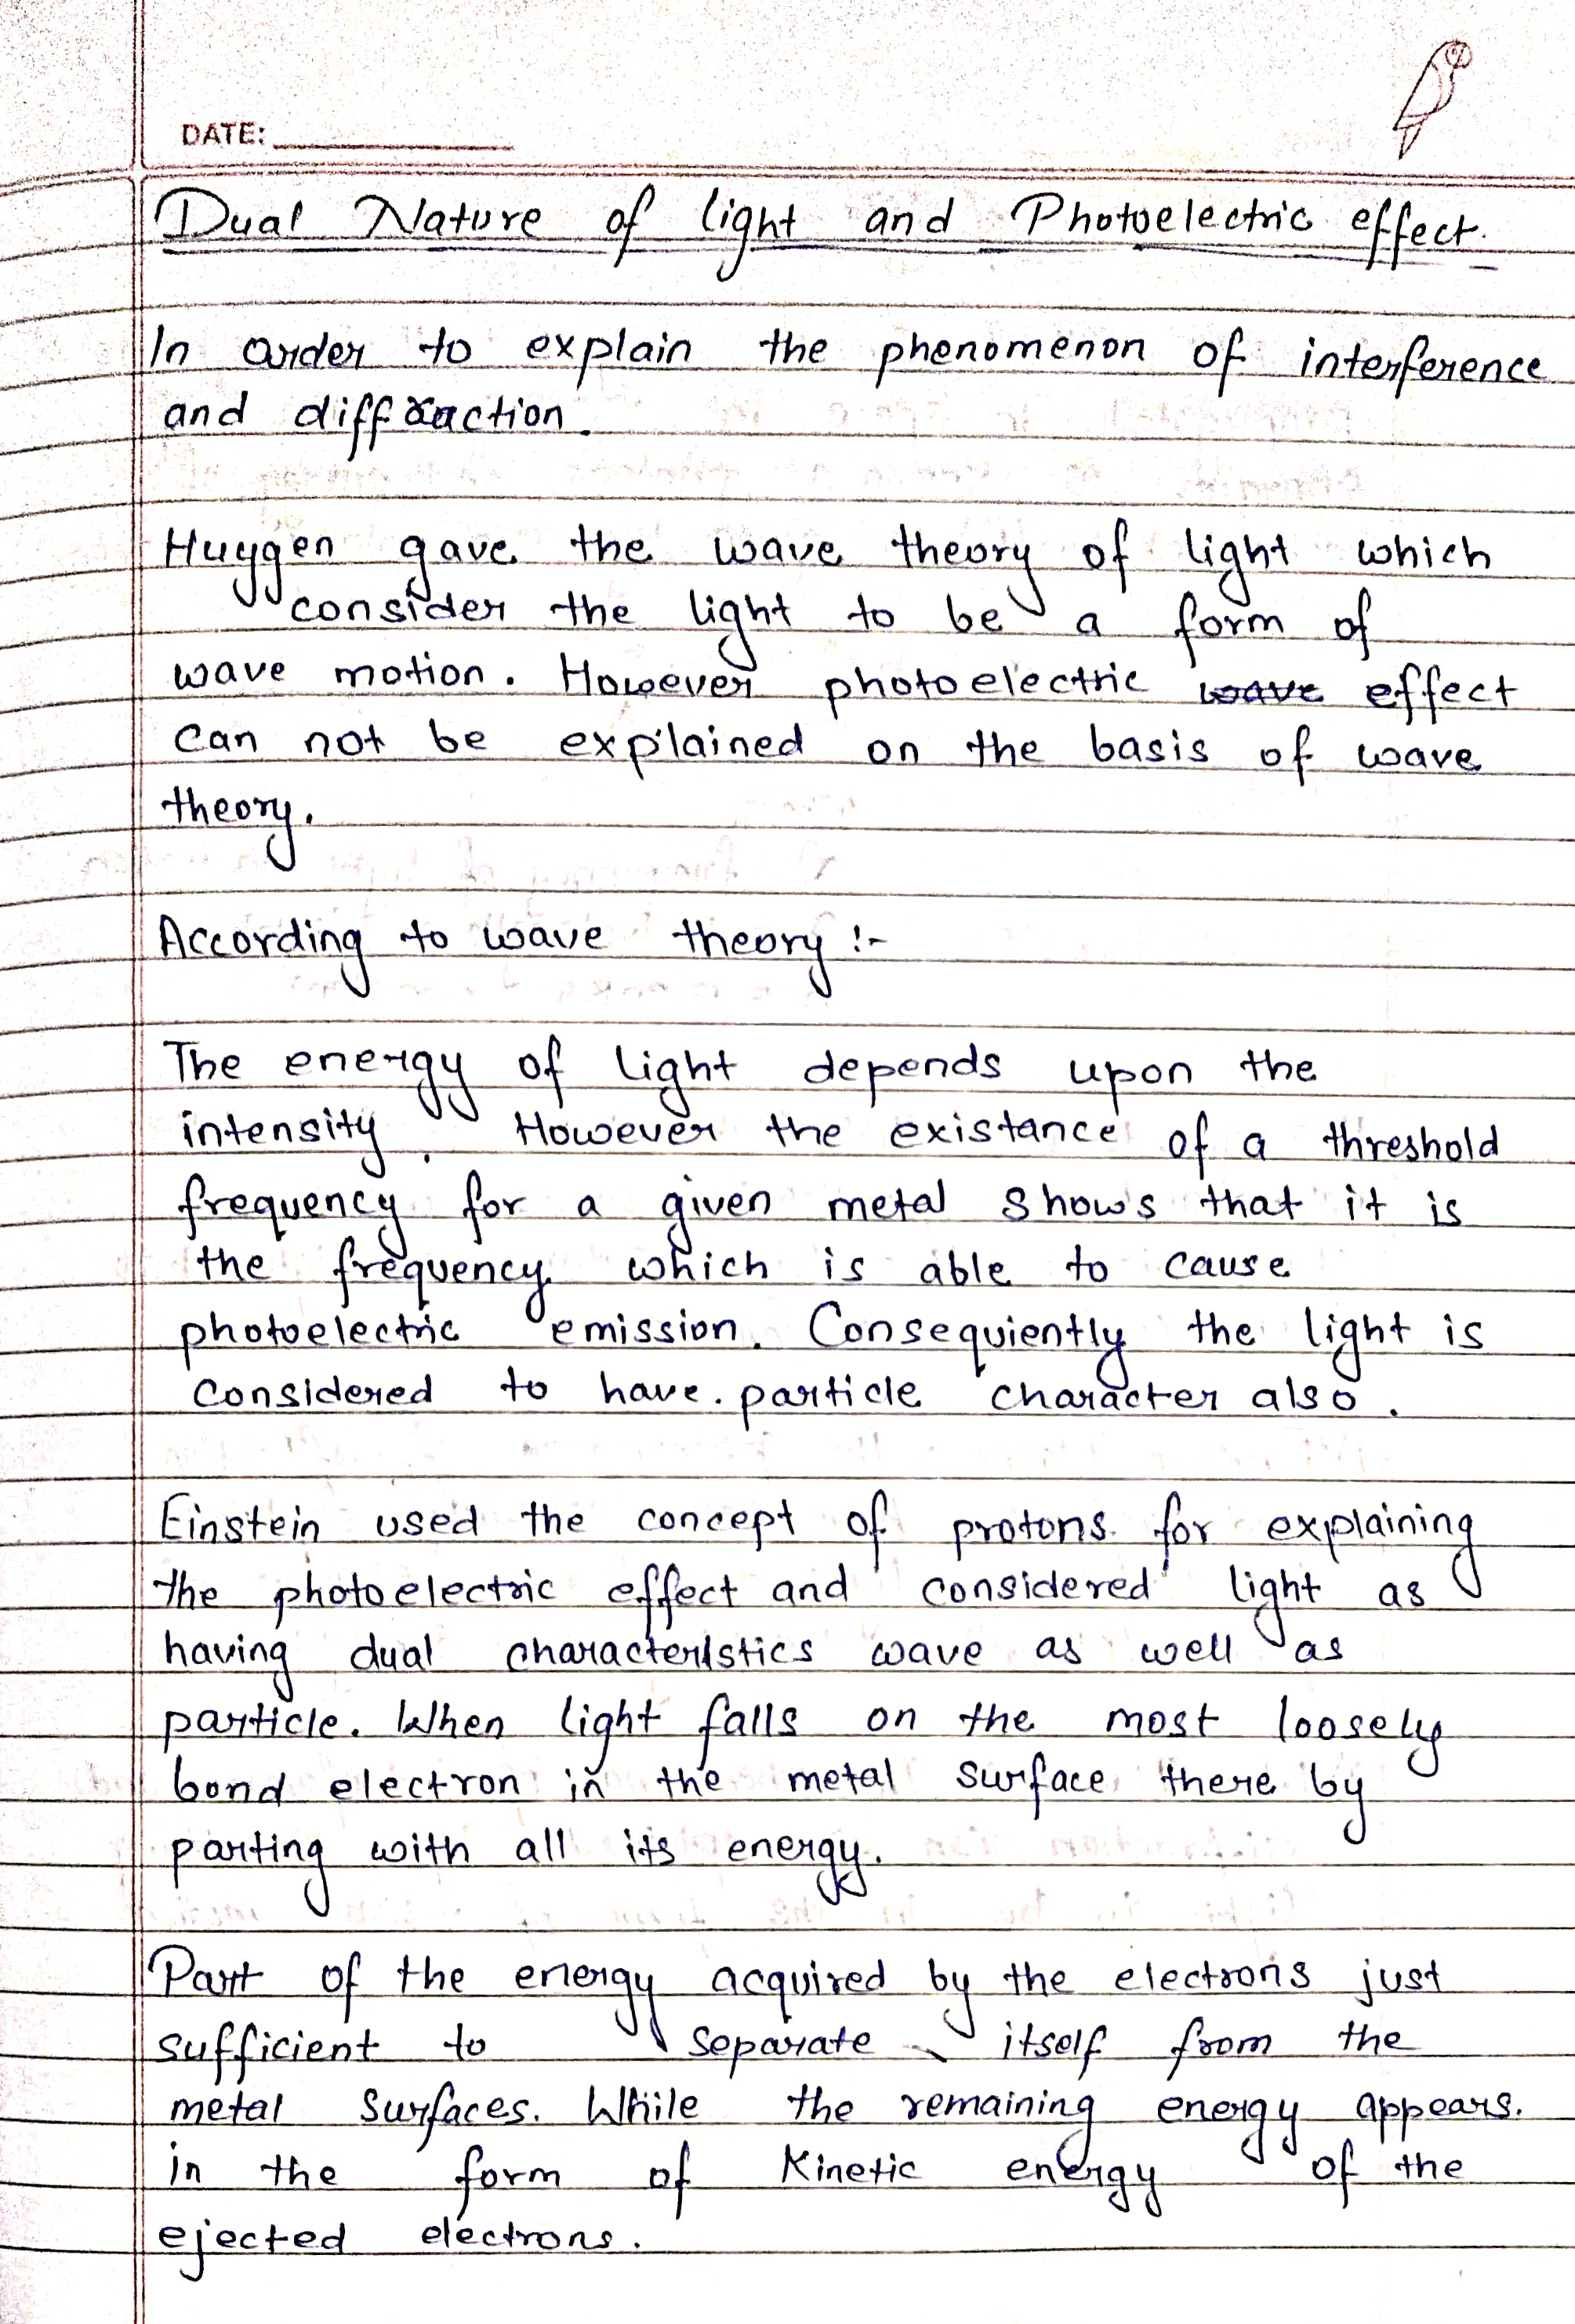 DATE:
Dual Nature of light and Photoelectric effect.
In order to explain the phenomenon of interference
and diffraction.
Huygen gave the wave theory of light which
consider the light to be a form of
wave motion. However photoelectric wave effect
can not be explained on the basis of wave
theory.
According to wave theory :-
The energy of light depends upon the
intensity. However the existance of a threshold
frequency for a given metal shows that it is
the frequency which is able to cause
photoelectric emission. Consequiently the light is
considered to have. particle character also.
Einstein used the concept of protons for explaining
the photoelectric effect and considered light as
having dual characteristics wave as well as
particle. When light falls on the most loosely
bond electron in the metal surface there by
parting with all its energy.
Part of the energy acquired by the electrons just
sufficient to separate itself from the
metal surfaces. While the remaining energy appears.
in the form of Kinetic energy of the
ejected electrons.